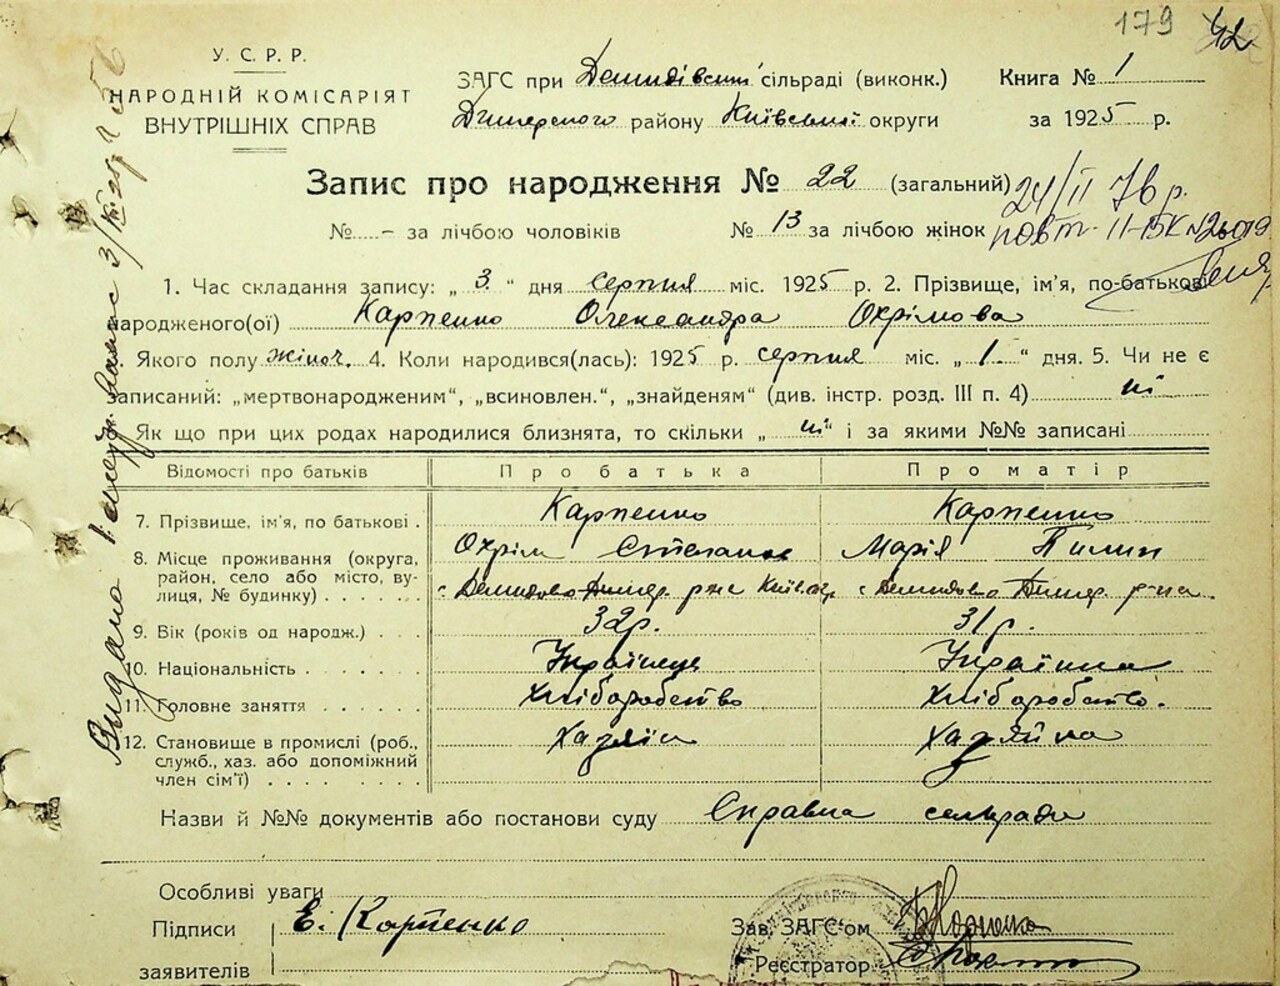 179 42
У. С. Р. Р.
НАРОДНІЙ КОМІСАРІЯТ
ВНУТРІШНІХ СПРАВ
ЗАГС при Демидівській сільраді (виконк.)
Димерського району Київської округи
Книга № 1
за 1925 р.
Запис про народження № 22 (загальний)
№ - за лічбою чоловіків № 13 за лічбою жінок
24/II 76 р.
повт. II-БК №
1. Час складання запису: „ 3 " дня серпня міс. 1925 р. 2. Прізвище, ім'я, по-батькові
народженого(ої) Карпенко Олександра Охрімова
Якого полу жіноч. 4. Коли народився(лась): 1925 р. серпня міс. „ 1 " дня. 5. Чи не є
записаний: „мертвонародженим", „всиновлен.", „знайденям" (див. інстр. розд. III п. 4) ні
Як що при цих родах народилися близнята, то скільки „ ні " і за якими №№ записані
Відомості про батьків Про батька Про матір
7. Прізвище, ім'я, по батькові . Карпенко Карпенко
Охрім Степанов Марія Пилип
8. Місце проживання (округа,
район, село або місто, ву-
лиця, № будинку) . . . . . с. Демидово Димер. р-на Київ. окр. с. Демидово Димер. р-на.
9. Вік (років од народж.) . . . 32р. 31р.
10. Національність . . . . . . Українець Українка
11. Головне заняття . . . . . . Хліборобство Хліборобство.
12. Становище в промислі (роб.,
служб., хаз. або допоміжний
член сім'ї) . . . . . . . . Хазяїн Хазяйка
Назви й №№ документів або постанови суду Справка сельради
Особливі уваги
Підписи Е. Карпенко Зав. ЗАГС'ом
заявителів Реєстратор
Видано